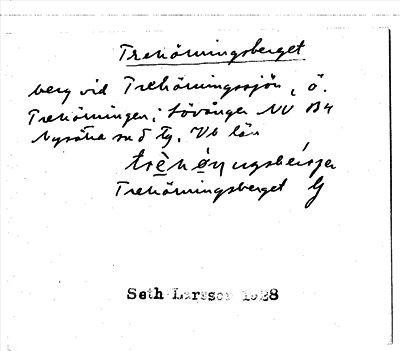 Trehörningsberget
berg vid Trehörningssjön, ö.
Trehörningen, Lövånger NV B4
Nysätra snd tg, Vb län
Trehörningsberget G
Seth Larsson 1928